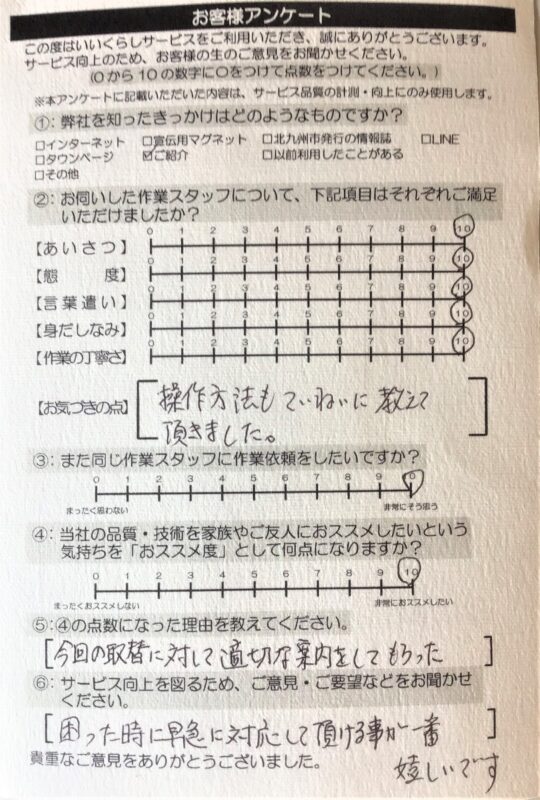 お客様アンケート
この度はいいくらしサービスをご利用いただき、誠にありがとうございます。
サービス向上のため、お客様の生のご意見をお聞かせください。
(0から10の数字に○をつけて点数をつけてください。)
※本アンケートに記載いただいた内容は、サービス品質の計測・向上にのみ使用します。
①：弊社を知ったきっかけはどのようなものですか？
□インターネット □宣伝用マグネット □北九州市発行の情報誌 □LINE
□タウンページ ☑ご紹介 □以前利用したことがある
□その他
②：お伺いした作業スタッフについて、下記項目はそれぞれご満足
いただけましたか？
0 1 2 3 4 5 6 7 8 9 10
【あいさつ】
0 1 2 3 4 5 6 7 8 9 10
【態度】
0 1 2 3 4 5 6 7 8 9 10
【言葉遣い】
0 1 2 3 4 5 6 7 8 9 10
【身だしなみ】
0 1 2 3 4 5 6 7 8 9 10
【作業の丁寧さ】
【お気づきの点】
操作方法もていねいに教えて
頂きました。
③：また同じ作業スタッフに作業依頼をしたいですか？
0 1 2 3 4 5 6 7 8 9 10
まったく思わない 非常にそう思う
④：当社の品質・技術を家族やご友人におススメしたいという
気持ちを「おススメ度」として何点になりますか？
0 1 2 3 4 5 6 7 8 9 10
まったくおススメしない 非常におススメしたい
⑤：④の点数になった理由を教えてください。
[今回の取替に対して適切な案内をしてもらった]
⑥：サービス向上を図るため、ご意見・ご要望などをお聞かせ
ください。
[困った時に早急に対応して頂ける事が一番]
嬉しいです
貴重なご意見をありがとうございました。